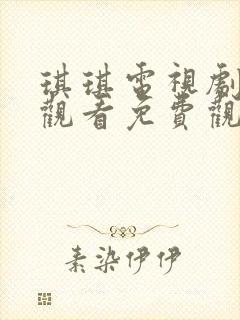 琪琪電視劇
觀看免費觀
素染伊伊